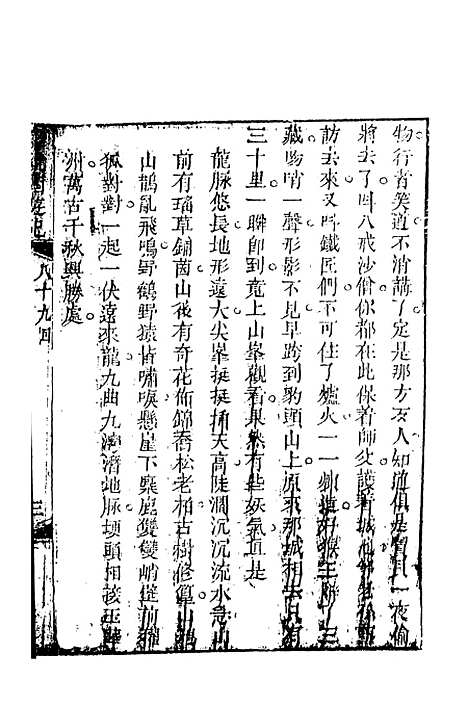 物行者笑道不消講了定是那方歹人知道俱是寶貝一夜偷
將去了叫八戒沙僧你都在此保着師父護着城池等老孫
訪去來又叫鐵匠們不可住了爐火一一煉造好猴王辭了三
藏唿哨一聲形影不見早跨到豹頭山上原來那城相去只有
三十里一瞬即到竟上山峯觀看果然有些妖氣真是
龍脉悠長地形遠大尖峯挺挺插天高陡澗沉沉流水急山
前有瑤草鋪茵山後有奇花布錦喬松老柏古樹修篁山鴉
山鵲亂飛鳴野鶴野猿皆嘯唳懸崖下麋鹿雙雙峭壁前獾
狐對對一起一伏遠來龍九曲九灣潛地脉埂頭相接玉華
州萬古千秋興勝處
八十九回
三